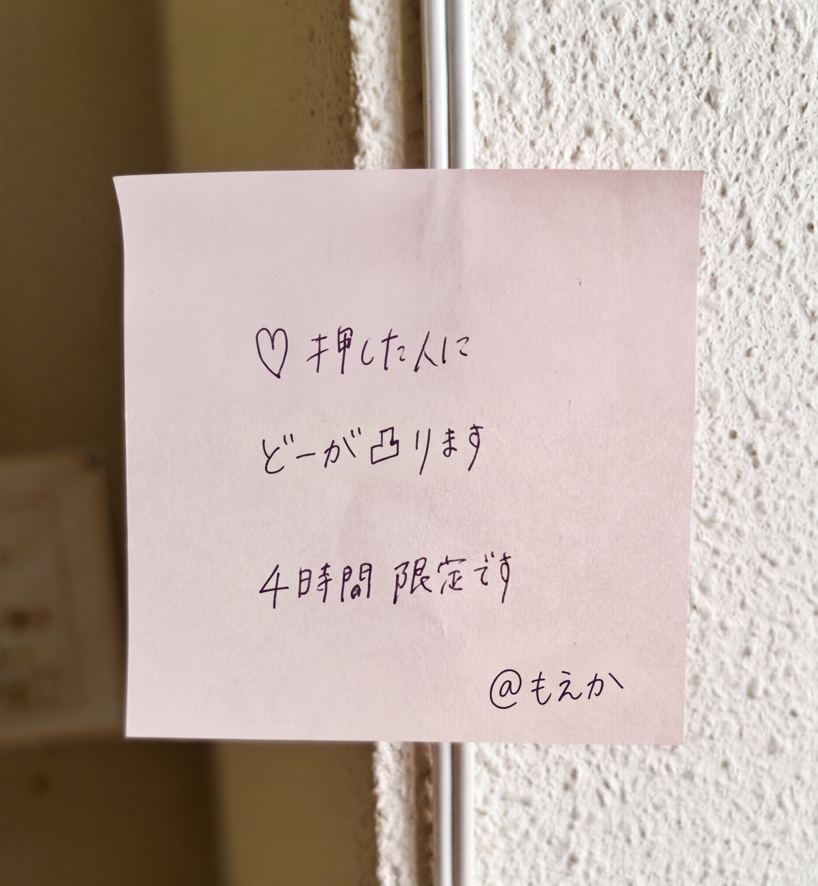 ♡押した人に
どーが凸ります
4時間 限定です
@もえか